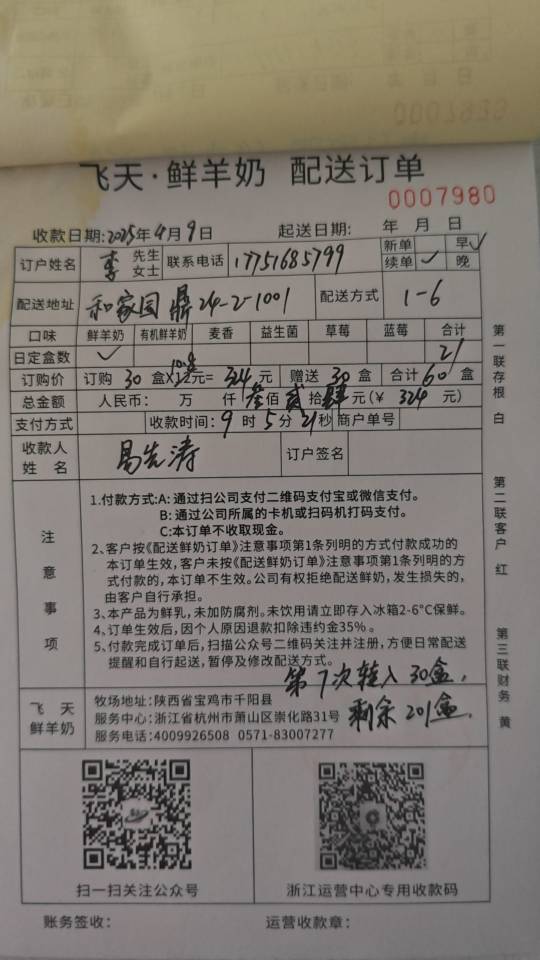 飞天·鲜羊奶 配送订单
0007980
收款日期:2025年4月9日 起送日期: 年 月 日
订户姓名 李 先生 女士 联系电话 17751685799 新单 早✓ 续单 ✓ 晚
配送地址 和家园 鼎24-2-1001 配送方式 1-6
口味 鲜羊奶 有机鲜羊奶 麦香 益生菌 草莓 蓝莓 合计
日定盒数 ✓ 21
订购价 订购 30 盒X10.8元= 324 元 赠送 30 盒 合计 60 盒
总金额 人民币: 万 仟 叁佰 贰拾肆元(¥ 324 元)
支付方式 收款时间: 9 时 5 分 21秒 商户单号
收款人姓名 易先涛 订户签名
注意事项
1.付款方式:A: 通过扫公司支付二维码支付宝或微信支付。
B: 通过公司所属的卡机或扫码机打码支付。
C:本订单不收取现金。
2、客户按《配送鲜奶订单》注意事项第1条列明的方式付款成功的
本订单生效,客户未按《配送鲜奶订单》注意事项第1条列明的方
式付款的,本订单不生效。公司有权拒绝配送鲜奶,发生损失的,
由客户自行承担。
3、本产品为鲜乳,未加防腐剂。未饮用请立即存入冰箱2-6°C保鲜。
4、订单生效后,因个人原因退款扣除违约金35%。
5、付款完成订单后,扫描公众号二维码关注并注册,方便日常配送
提醒和自行起送,暂停及修改配送方式。
第7次转入30盒,
剩余201盒.
飞天 鲜羊奶
牧场地址:陕西省宝鸡市千阳县
服务中心:浙江省杭州市萧山区崇化路31号
服务电话:4009926508 0571-83007277
扫一扫关注公众号 浙江运营中心专用收款码
账务签收: 运营收款章:
第一联存根 白
第二联客户 红
第三联财务 黄